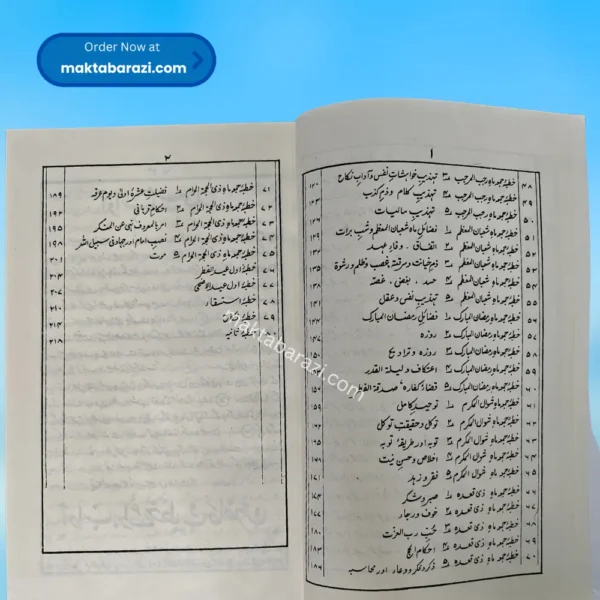 Order Now at
maktabarazi.com
۱
۴۸ خطبۂ جمعہ ماہ رجب المرجب ۳ تہذیب خواہشاتِ نفس و آدابِ نکاح ۱۲۰
۴۹ خطبۂ جمعہ ماہ رجب المرجب تہذیبِ کلام و ذم کذب
۵۰ خطبۂ جمعہ ماہ رجب المرجب ۵ تہذیبِ مالیات
۵۱ خطبۂ جمعہ ماہ شعبان المعظم ۱ فضائلِ ماہ شعبان المعظم و شب برات
۵۲ خطبۂ جمعہ ماہ شعبان المعظم اتفاق، وفاء عہد ۱۳۲
۵۳ خطبۂ جمعہ ماہ شعبان المعظم ۳ ذم خیانت و سرقہ غصب و ظلم و رشوة ۱۳۵
۵۴ خطبۂ جمعہ ماہ شعبان المعظم حسد، بغض، غصہ ۱۳۸
۵۵ خطبۂ جمعہ ماہ شعبان المعظم ۵ تہذیبِ نفس و عقل ۱۴۱
۵۶ خطبۂ جمعہ ماہ رمضان المبارک ۱ فضائلِ رمضان المبارک ۱۴۴
۵۷ خطبۂ جمعہ ماہ رمضان المبارک روزہ ۱۴۷
۵۸ خطبۂ جمعہ ماہ رمضان المبارک ۳ روزہ و تراویح ۱۵۰
۵۹ خطبۂ جمعہ ماہ رمضان المبارک اعتکاف و لیلۃ القدر
۶۰ خطبۂ جمعہ ماہ رمضان المبارک ۵ قضاء کفارہ، صدقۃ الفطر
۶۱ خطبۂ جمعہ ماہ شوال المکرم ۱ توحیدِ کامل ۱۵۹
۶۲ خطبۂ جمعہ ماہ شوال المکرم توکل و حقیقتِ توکل ۱۶۲
۶۳ خطبۂ جمعہ ماہ شوال المکرم ۳ توبہ اور طریقۂ توبہ ۱۶۵
۶۴ خطبۂ جمعہ ماہ شوال المکرم اخلاص و حسنِ نیت
۶۵ خطبۂ جمعہ ماہ شوال المکرم ۵ فقر و زہد ۱۷۱
۶۶ خطبۂ جمعہ ماہ ذی قعدہ ۱ صبر و شکر ۱۷۴
۶۷ خطبۂ جمعہ ماہ ذی قعدہ خوف و رجاء ۱۷۷
۶۸ خطبۂ جمعہ ماہ ذی قعدہ ۳ حُبِّ رب العزت ۱۸۰
۶۹ خطبۂ جمعہ ماہ ذی قعدہ احکام الحج ۱۸۳
۷۰ خطبۂ جمعہ ماہ ذی قعدہ ۵ ذکر و فکر و دعاء اور محاسبہ ۱۸۶
۲
۷۱ خطبۂ جمعہ ماہ ذی الحجۃ الحرام ۱ فضیلتِ عشرۂ اولیٰ و یوم عرفہ ۱۸۹
۷۲ خطبۂ جمعہ ماہ ذی الحجۃ الحرام احکام قربانی ۱۹۲
۷۳ خطبۂ جمعہ ماہ ذی الحجۃ الحرام ۳ امر بالمعروف نہی عن المنکر ۱۹۵
۷۴ خطبۂ جمعہ ماہ ذی الحجۃ الحرام نصب امام اور جہاد فی سبیل اللہ ۱۹۸
۷۵ خطبۂ جمعہ ماہ ذی الحجۃ الحرام ۵ موت ۲۰۱
۷۶ خطبۂ اول عید الفطر ۲۰۴
۷۷ خطبۂ اول عید الاضحیٰ ۲۰۷
۷۸ خطبۂ استسقاء ۲۱۰
۷۹ خطبۂ نکاح ۲۱۴
خطبۂ ثانیہ ۲۱۸
maktabarazi.com